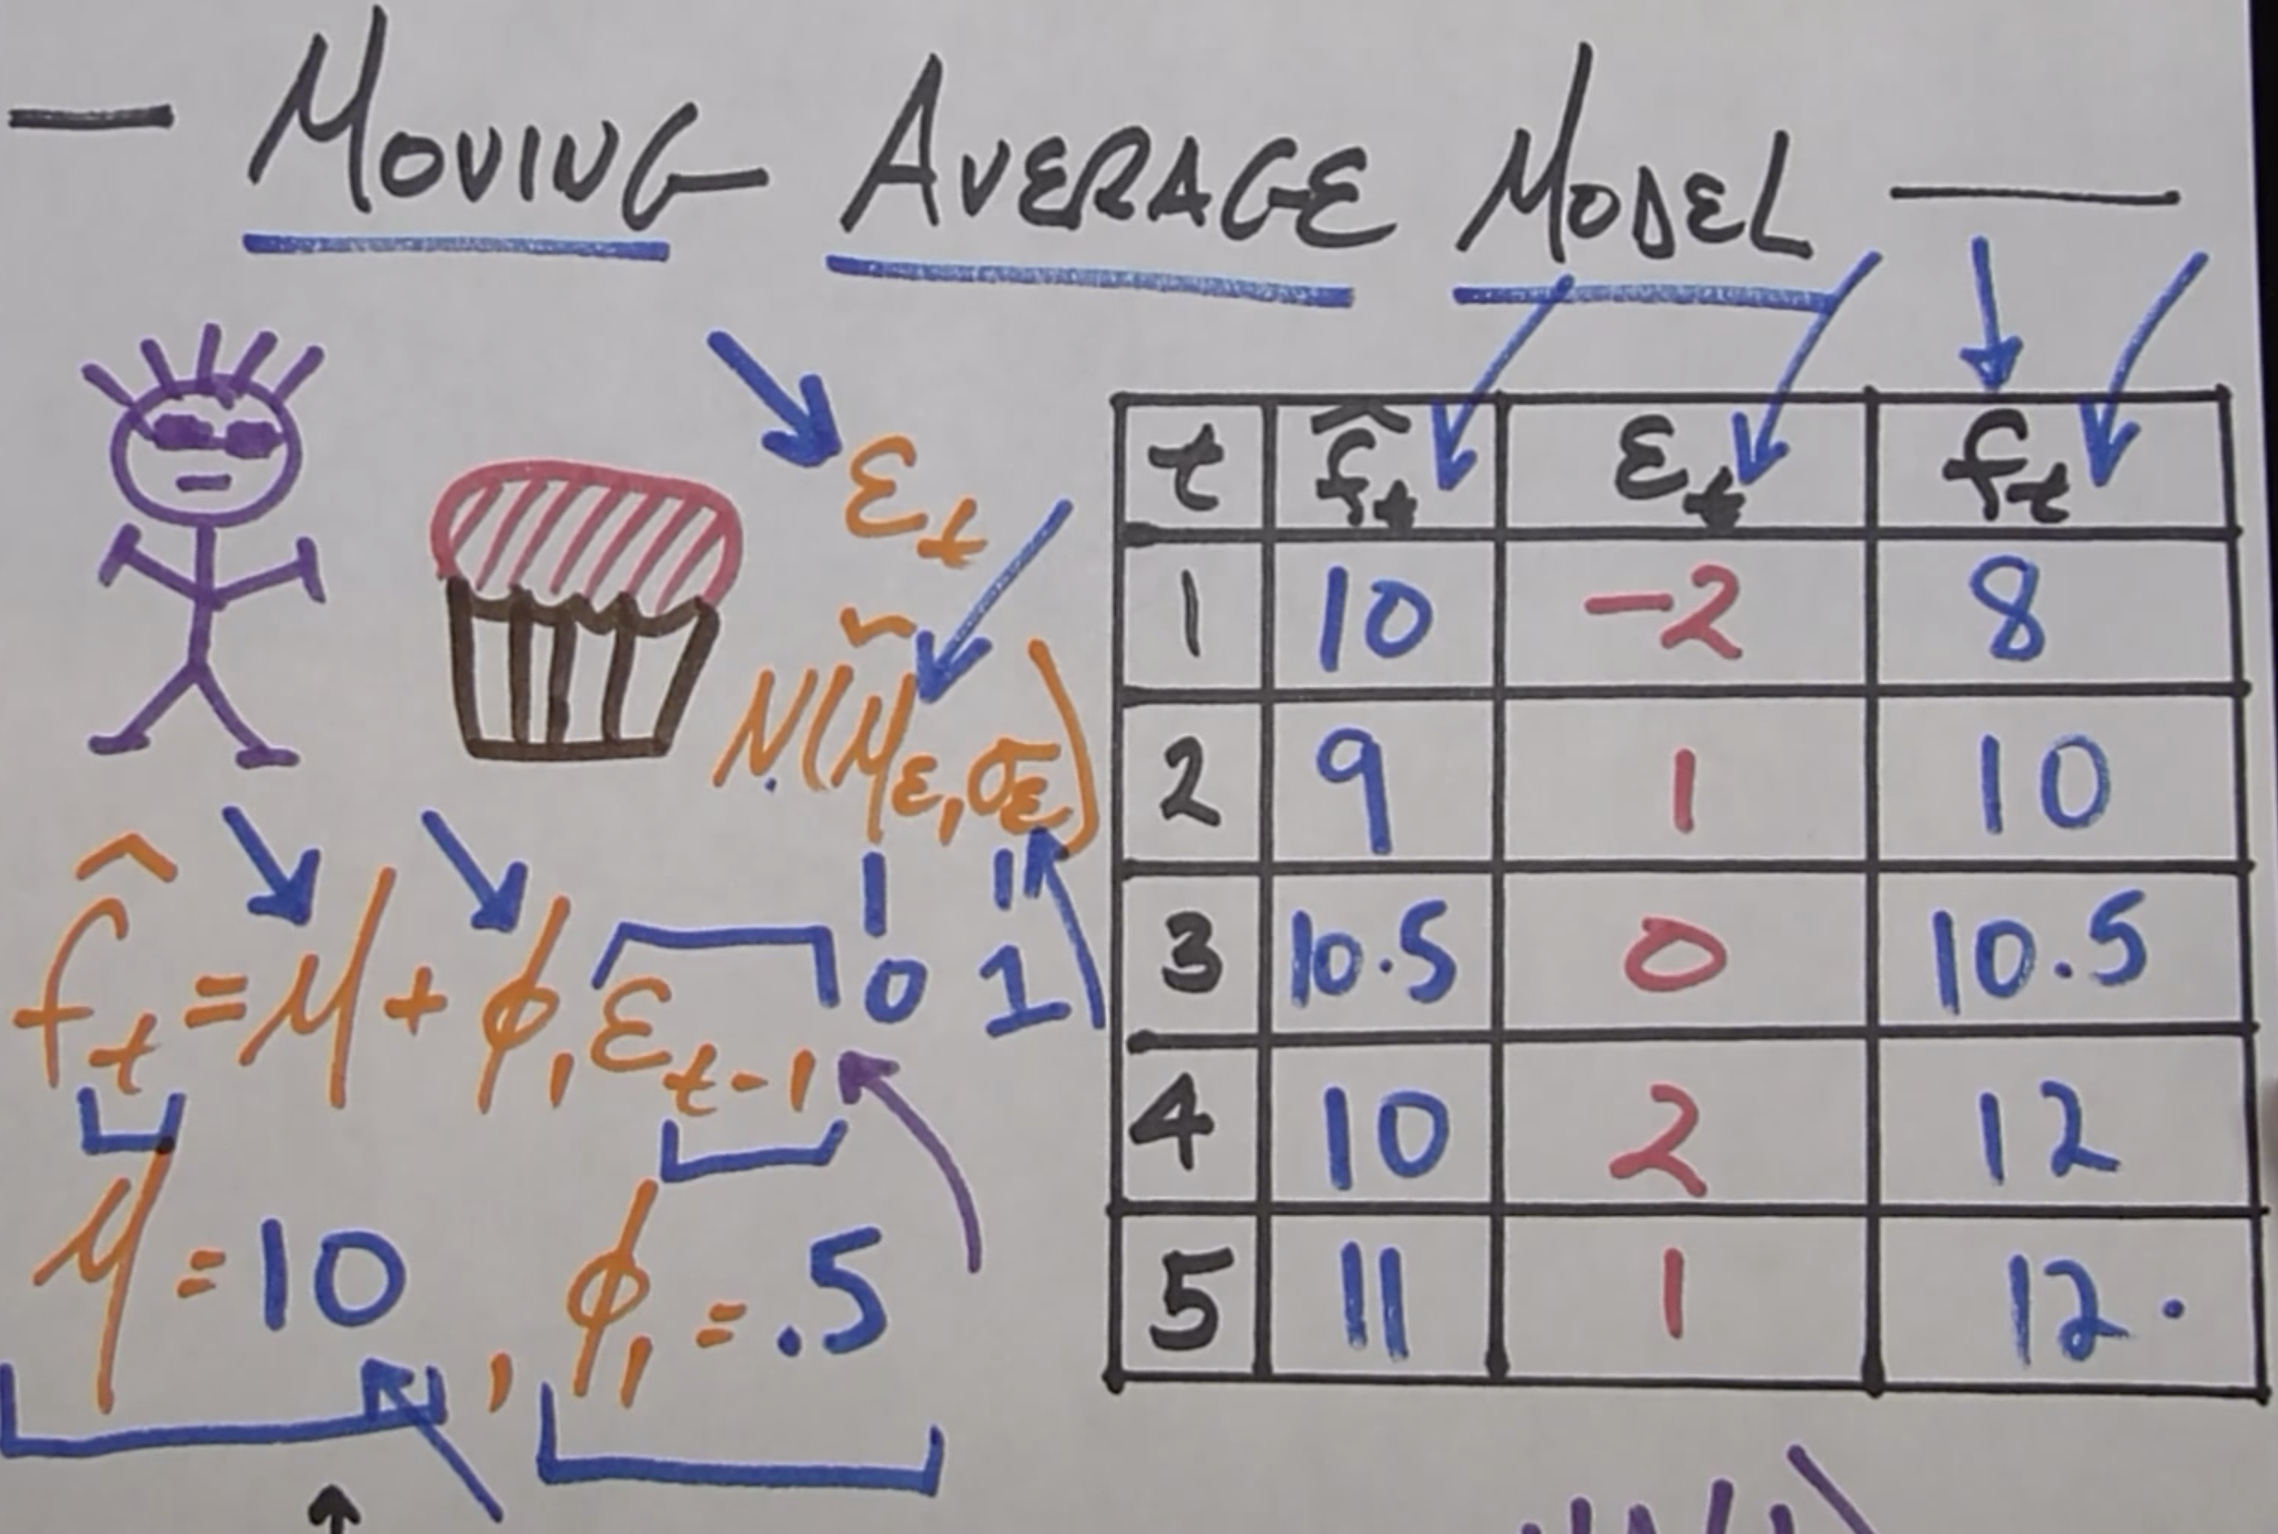 — MOVING AVERAGE MODEL —
εₜ
~
N(μ_ε, σ_ε)
0 1
f̂ₜ = μ + φ₁ εₜ₋₁
μ = 10 , φ₁ = .5
t f̂ₜ εₜ fₜ
1 10 -2 8
2 9 1 10
3 10.5 0 10.5
4 10 2 12
5 11 1 12.